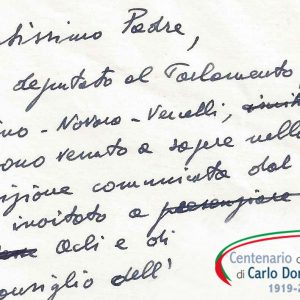 tissimo Padre,
deputato al Parlamento,
ino - Novara - Vercelli,
ono venuto a sapere nella
izione comunicata dal
invitato a presenziare
Acli e di
onsiglio dell'
Centenario d
di Carlo Don
1919-2